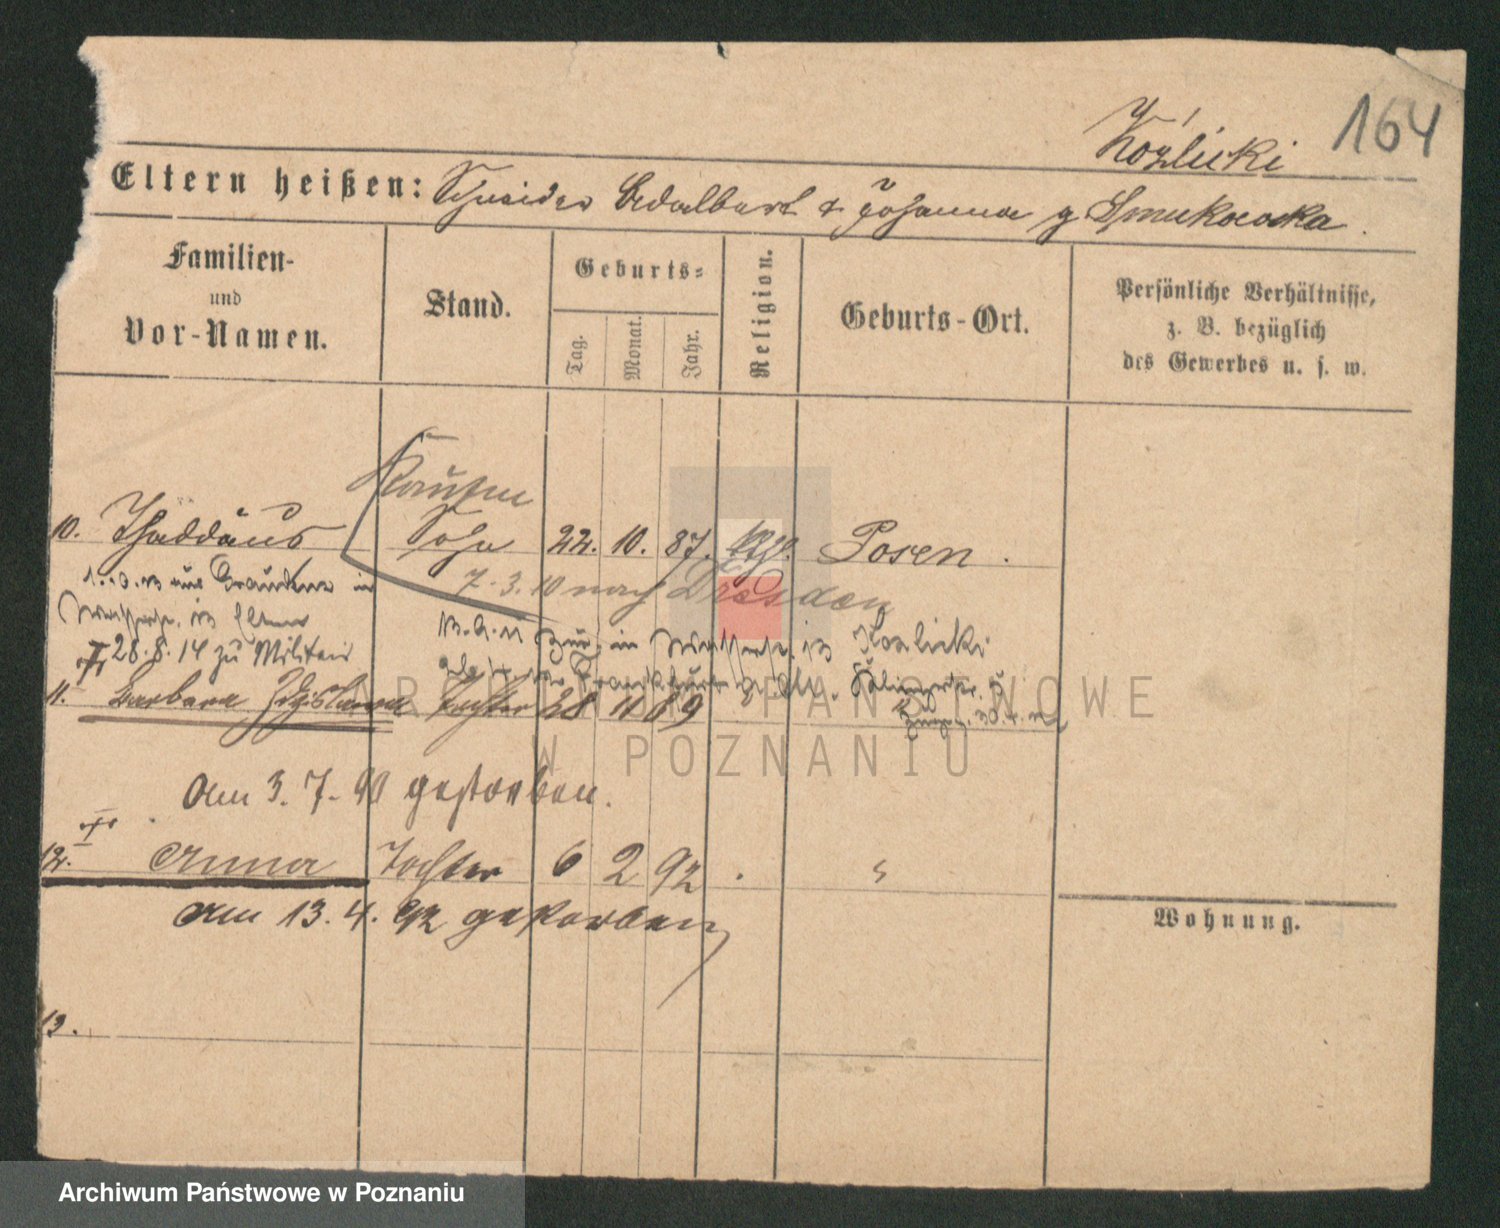 164
Kóźlicki
Eltern heißen: Schneider Adalbert & Johanna g. Smukowska.
Familien-
und
Vor-Namen.
Stand.
Geburts-
Tag.
Monat.
Jahr.
Religion.
Geburts-Ort.
Persönliche Verhältnisse,
z. B. bezüglich
des Gewerbes u. s. w.
Kaufm
10. Thaddäus Sohn 22. 10. 87. kth. Posen.
aus Graudenz in
7.3.10 nach Dresden
Eltern
in Kozlicki
28.8.14 zu Militair
11. Barbara Tochter 28 11 89
Am 3.7.90 gestorben.
12. Anna Tochter 6 2 92 "
Am 13.4.92 gestorben
Wohnung.
13.
ARCHIWUM PAŃSTWOWE
W POZNANIU
Archiwum Państwowe w Poznaniu